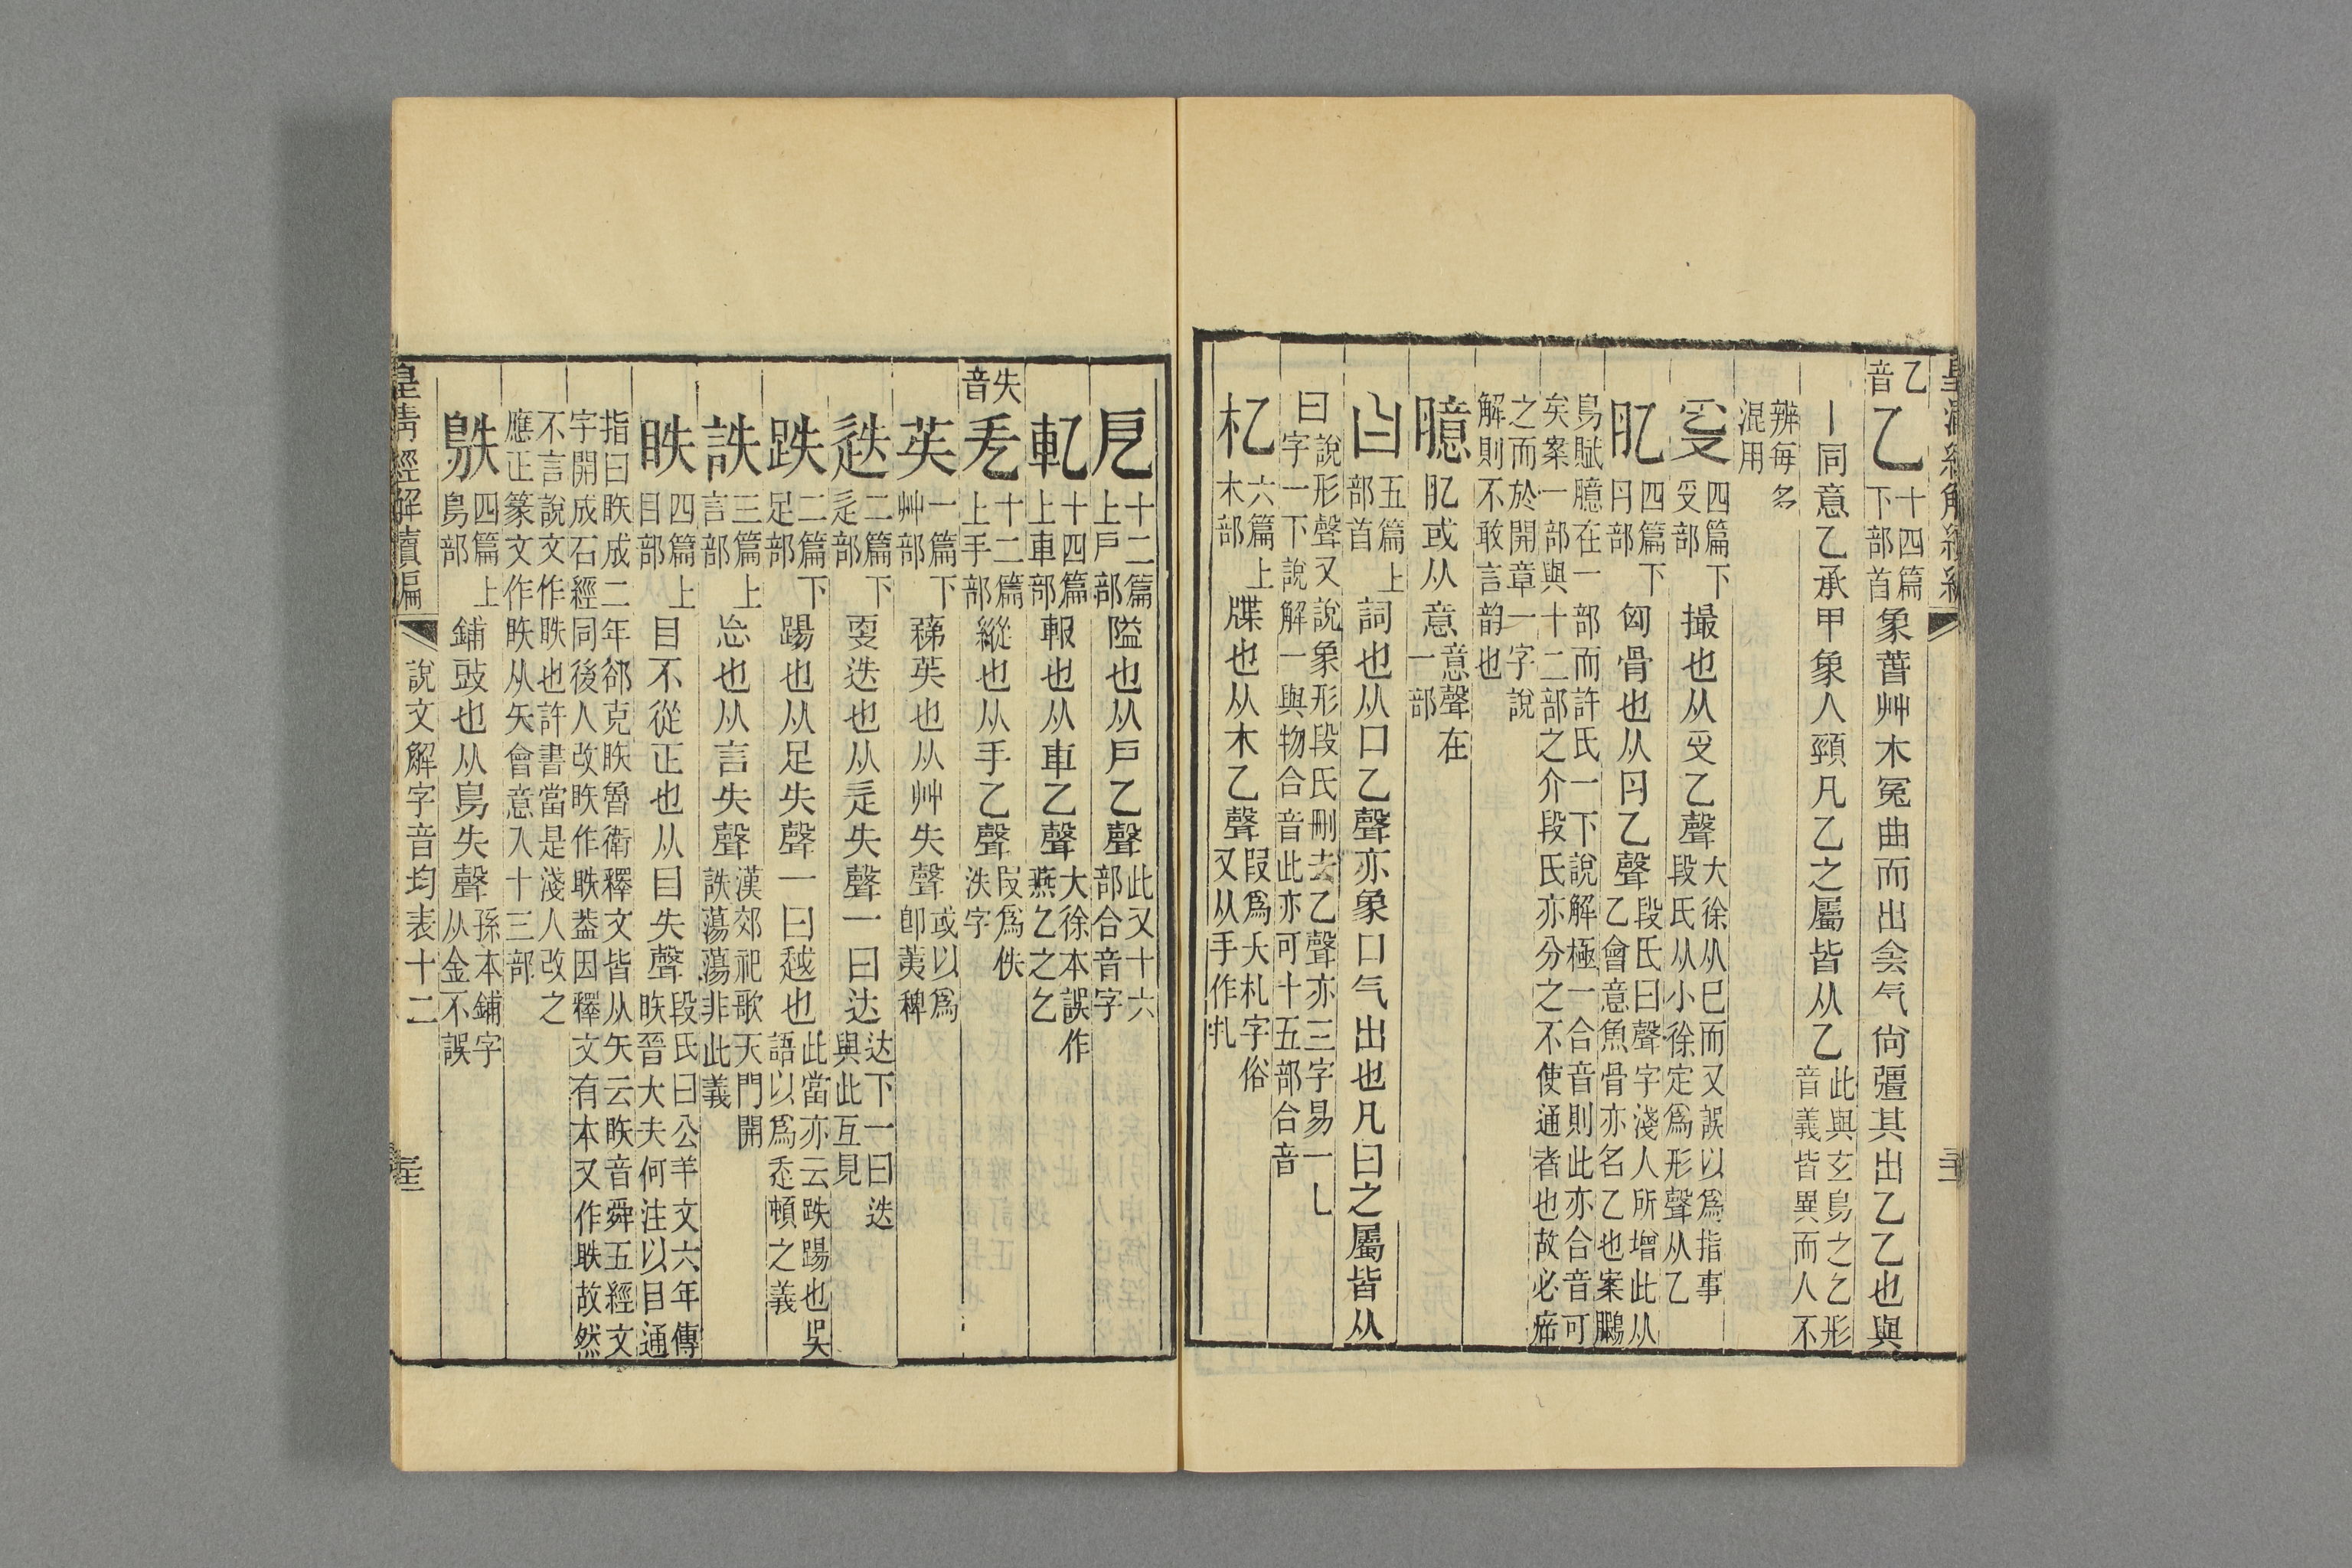 乙音 乙 十四篇下部首 象萅艸木冤曲而出侌气尙彊其出乙乙也與
丨同意乙承甲象人頸凡乙之屬皆从乙 此與玄鳥之乙形音義皆異而人不
辨每多混用
𠬪 四篇下𠬪部 撮也从𠬪乙聲 大徐从巳而又誤以爲指事段氏从小徐定爲形聲从乙
肊 四篇下肉部 匈骨也从肉乙聲 段氏曰聲字淺人所增此从乙會意魚骨亦名乙也案鵩
鳥賦臆在一部而許氏一下說解極一合音則此亦合音可矣案一部與十二部之介段氏亦分之不使通者也故必㾕
之而於開章一字說解則不敢言韵也
臆 肊或从意 意聲在一部
曰 五篇上部首 詞也从口乙聲亦象口气出也凡曰之屬皆从
曰 說形聲又說象形段氏刪去乙聲亦三字易一乚字一下說解一與物合音此亦可十五部合音
札 六篇上木部 牒也从木乙聲 叚爲夭札字俗又从手作扎
戹 十二篇上戶部 隘也从戶乙聲 此又十六部合音字
軋 十四篇上車部 輾也从車乙聲 大徐本誤作燕乙之乞
失音 失 十二篇上手部 縱也从手乙聲 叚爲佚泆字
苵 一篇下艸部 蕛苵也从艸失聲 或以爲卽荑稗
迭 二篇下辵部 更迭也从辵失聲一曰达 达下一曰迭與此互見
跌 二篇下足部 踼也从足失聲一曰越也 此當亦云跌踼也吳語以爲丕頓之義
詄 三篇上言部 忘也从言失聲 漢郊祀歌天門開詄蕩蕩非此義
眣 四篇上目部 目不從正也从目失聲 段氏曰公羊文六年傳眣晉大夫何注以目通
指曰眣成二年郤克眣魯衛釋文皆从矢云眣音舜五經文字開成石經同後人改眣作眣葢因釋文有本又作眣故然
不言說文作眣也許書當是淺人改之應正篆文作眣从矢會意入十三部
鴃 四篇上鳥部 鋪豉也从鳥失聲 孫本鋪字从金不誤
皇清經解續編 說文解字音均表十二